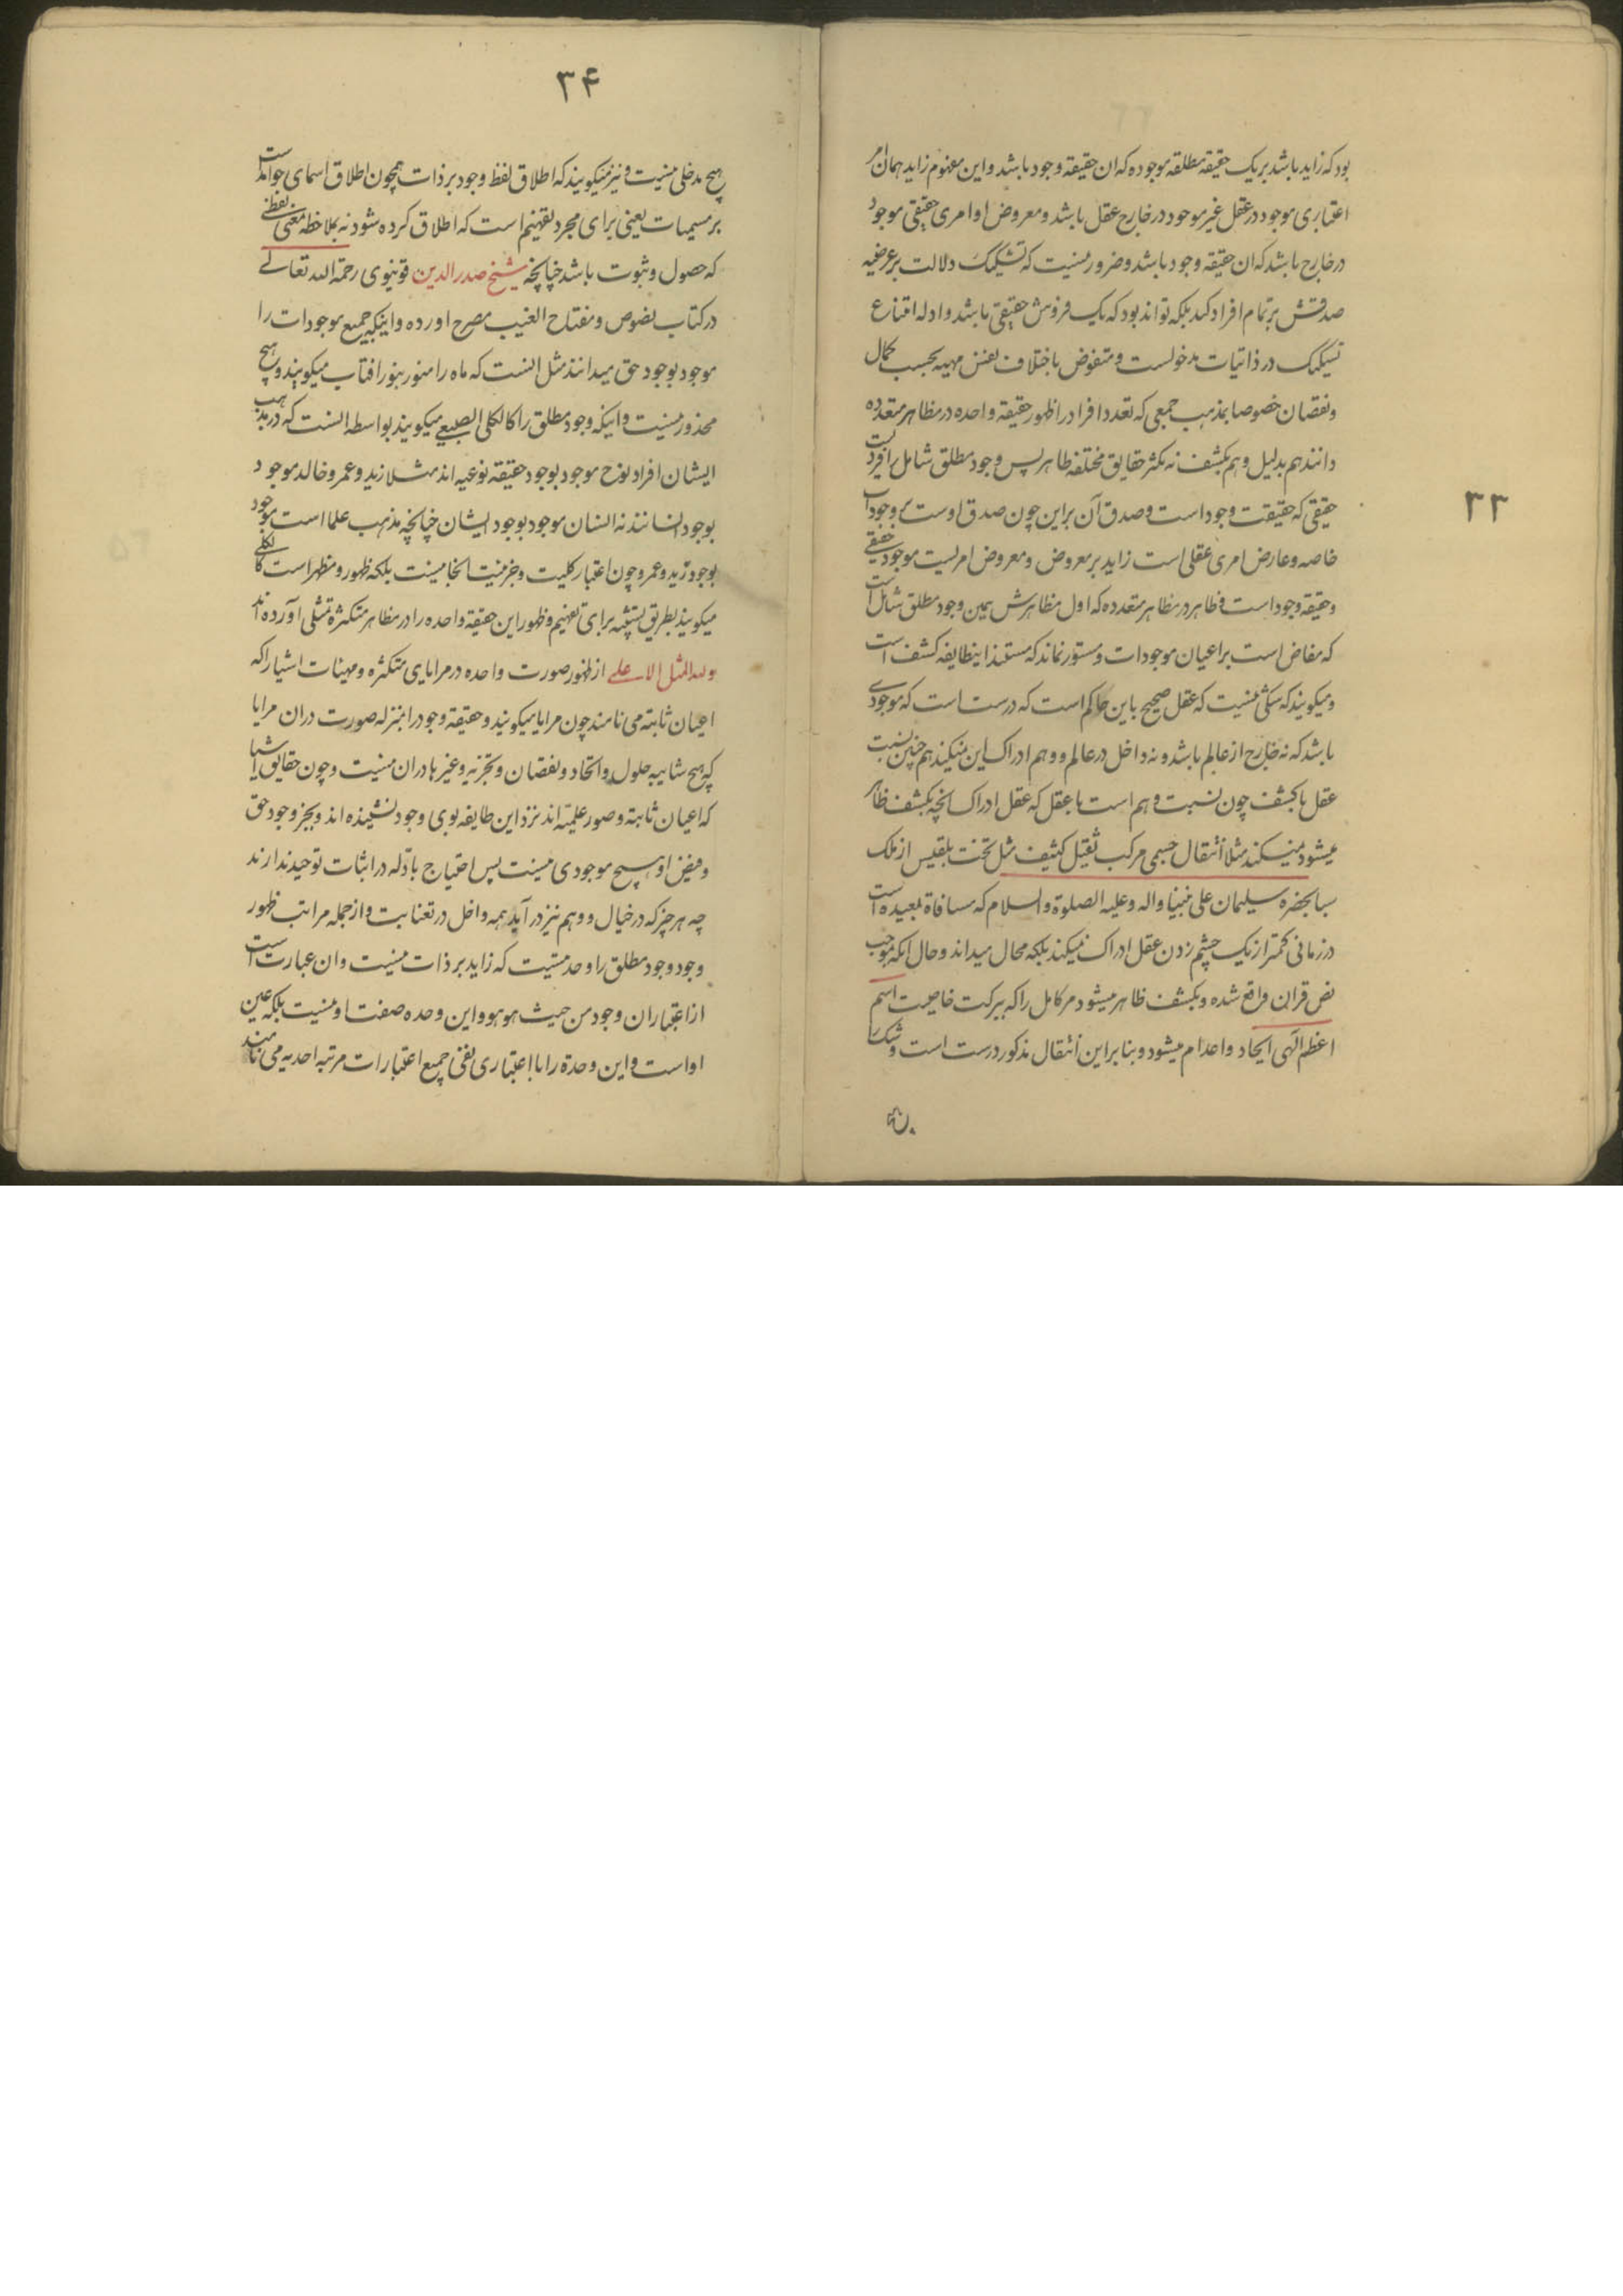 ۳۳
بود که زاید باشد بر یک حقیقة مطلقه موجوده که ان حقیقة وجود باشد و این مفهوم زاید همان امر
اعتباری موجود در عقل غیر موجود در خارج عقل باشد و معروض او امری حقیقی موجود
در خارج باشد که ان حقیقة وجود باشد و ضرور نیست که تشکیک دلالت بر عرضیه
صدقش بر تمام افراد کند بلکه تواند بود که یک فروش حقیقی باشد و ادله امتناع
تشکیک در ذاتیات مدخولست و منقوض باختلاف نفس مهیه بحسب کمال
و نقصان خصوصا بمذهب جمعی که تعدد افراد را ظهور حقیقة واحده در مظاهر متعدده
دانند هم بدلیل و هم بکشف نه تکثر حقایق مختلفه ظاهر پس وجود مطلق شامل افراد
حقیقی که حقیقت وجود است و صدق آن براین چون صدق اوست بر وجودات
خاصه و عارض امری عقلی است زاید بر معروض و معروض امریست موجود حقیقی
و حقیقة وجود است و ظاهر در مظاهر متعدده که اول مظاهرش همین وجود مطلق شامل است
که مفاض است بر اعیان موجودات و مستور نماند که مستند اینطایفه کشف است
و میکویند که شکی نیست که عقل صحیح باین حاکم است که درست است که موجودی
باشد که نه خارج از عالم باشد و نه داخل در عالم و وهم ادراک این نمیکند هم چنین نسبت
عقل با کشف چون نسبت وهم است با عقل که عقل ادراک انچه بکشف ظاهر
میشود نمیکند مثلا انتقال جسمی مرکب ثقیل کثیف مثل تخت بلقیس از ملک
سبا بحضرة سلیمان علی نبینا واله وعلیه الصلوة والسلام که مسافاة بعیده است
در زمانی کمتر از یک چشم زدن عقل ادراک نمیکند بلکه محال میداند و حال انکه بموجب
نص قران واقع شده و بکشف ظاهر میشود مر کامل را که ببرکت خاصیت اسم
اعظم الهی ایجاد و اعدام میشود و بنابر این انتقال مذکور درست است و شک
۳۴
هیچ مدخلی نیست و نیز میکویند که اطلاق لفظ وجود بر ذات همچون اطلاق اسمای جوامد است
بر مسمیات یعنی برای مجرد تفهیم است که اطلاق کرده شود نه بملاحظه معنی لفظی
که حصول و ثبوت باشد چنانچه شیخ صدر الدین قونیوی رحمة الله تعالی
در کتاب نصوص و مفتاح الغیب مصرح اورده و اینکه جمیع موجودات را
موجود بوجود حق میدانند مثل انست که ماه را منور بنور افتاب میکویند و هیچ
محذور نیست و اینکه وجود مطلق را کالکلی الطبیعی میکویند بواسطه انست که در مذهب
ایشان افراد نوع موجود بوجود حقیقة نوعیه اند مثلا زید و عمرو خالد موجود
بوجود انسانند نه انسان موجود بوجود ایشان چنانچه مذهب علما است موجود
بوجود زید و عمرو چون اعتبار کلیت و جزئیت انجا نیست بلکه ظهور و مظهر است کالکلی
میکویند بطریق تشبیه برای تفهیم و ظهور این حقیقة واحده را در مظاهر متکثره تمثیلی آورده اند
ولله المثل الاعلی از ظهور صورت واحده در مرایای متکثره و مهیات اشیا را که
اعیان ثابته می نامند چون مرایا میکویند و حقیقة وجود را بمنزله صورت دران مرایا
که هیچ شایبه حلول و اتحاد و نقصان و تجزیه و غیر ها دران نیست و چون حقایق اشیا
که اعیان ثابتة و صور علمیّه اند نزد این طایفه بوی وجود نشنیده اند و بجز وجود حق
و فیض او هیچ موجودی نیست پس احتیاج بادّله در اثبات توحید ندارند
چه هر چیز که در خیال و وهم نیز در آید همه داخل در تعنیات و از جمله مراتب ظهور
وجود وجود مطلق را وحدتیست که زاید بر ذات نیست و ان عبارت است
از اعتباران وجود من حیث هو هو و این وحده صفت او نیست بلکه عین
اواست و این وحدة را با اعتباری نفی جمیع اعتبارات مرتبه احدیه می نامند